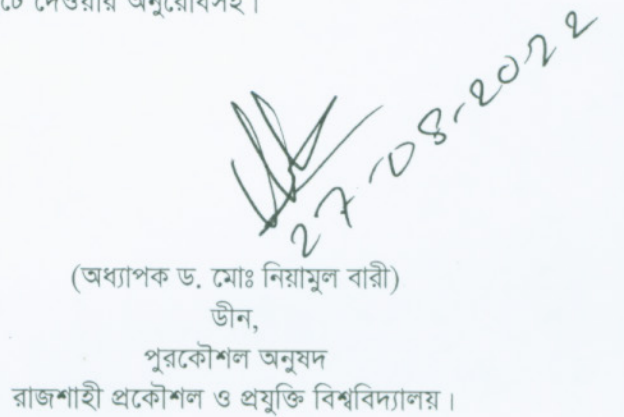 দেওয়ার অনুরোধসহ।
27-08-2022
(অধ্যাপক ড. মোঃ নিয়ামুল বারী)
ডীন,
পুরকৌশল অনুষদ
রাজশাহী প্রকৌশল ও প্রযুক্তি বিশ্ববিদ্যালয়।